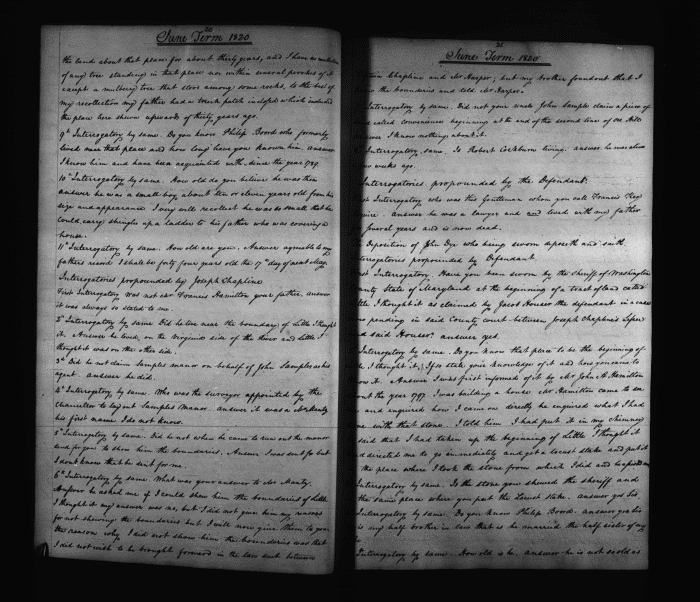 20
June Term 1820
the land about that place for about thirty years, and I have no
of any tree standing in that place nor within several perches of it
except a mulberry tree that stood among some rocks, to the best of
my recollection my father had a truck patch inclosed which included
the place here shewn upwards of thirty years ago.
9th Interrogatory by same. Do you know Philip Boord who formerly
lived near that place and how long have you known him. answer
I know him and have been acquainted with since the year 1787.
10th Interrogatory by same. How old do you believe he was then
answer he was a small boy about ten or eleven years old from his
size and appearance I very well recollect he was so small that he
could carry shingles up a ladder to his father who was covering a
house.
11th Interrogatory by same. How old are you. Answer agreeable to my
fathers record I shall be forty four years old the 17th day of next May.
Interrogatories propounded by Joseph Chapline
First Interrogatory Was not Mr Francis Hamilton your father. answer
it was always so stated to me.
2d Interrogatory by same Did he live near the boundary of Little I thought
it. Answer he lived on the Virginia side of the River and Little I
thought it was on the other side.
3d Did he not claim Samples manor on behalf of John Samples as his
agent. answer he did.
4th Interrogatory by same. Who was the surveyor appointed by the
Chancellor to lay out Samples Manor. answer it was a Mr Manty
his first name I do not know.
5th Interrogatory by same. Did he not when he came to run out the manor
send for you to shew him the boundaries. Answer I was sent for but
I dont know that he sent for me.
6th Interrogatory by same. What was your answer to Mr Manty.
Answer he asked me if I could shew him the boundaries of Little
I thought it my answer was no, but I did not give him my reasons
for not shewing the boundaries but I will now give them to you
the reason why I did not shew him the boundaries was that
I did not wish to be brought forward in the law suit between
21
June Term 1820
Chapline and Mr Harper; but my brother found out that I
the boundaries and told Mr Harper.
Interrogatory by same. Did not your uncle John Sample claim a piece of
land called conveniency beginning at the end of the second line of
answer I know nothing about it.
Interrogatory, same. Is Robert Cockburn living. answer he was alive
two weeks ago.
Interrogatories propounded by the Defendant.
First Interrogatory who was this Gentleman whom you call Francis Key
Esquire. answer he was a lawyer and lived with my father
several years and is now dead.
Deposition of John Dye who being sworn deposeth and saith
Interrogatories propounded by Defendant.
First Interrogatory. Have you been sworn by the sheriff of Washington
County State of Maryland at the beginning of a tract of land called
Little I thought it as claimed by Jacob Houser the defendant in a case
now pending in said County court between Joseph Chapline's Lessee
and said Houser. answer yes.
Interrogatory by same. Do you know that place to be the beginning of
I thought it; If so state your knowledge of it and how you came to
know it. Answer I was first informed of it by Mr John A. Hamilton
about the year 1797. I was building a house Mr Hamilton came to see
me and enquired how I came on directly he enquired what I had
done with that stone. I told him I had put it in my Chimney
said that I had taken up the beginning of Little I thought it
directed me to go immediately and get a locust stake and put it
the place where I took the stone from which I did and
Interrogatory by same. Is the stone you shewed the sheriff and
the same place where you put the Locust stake. answer yes Sir.
Interrogatory by same. Do you know Philip Boord. answer yea he
is my half brother in law that is he married the half sister of my
Interrogatory by same. How old is he. answer he is not so old as